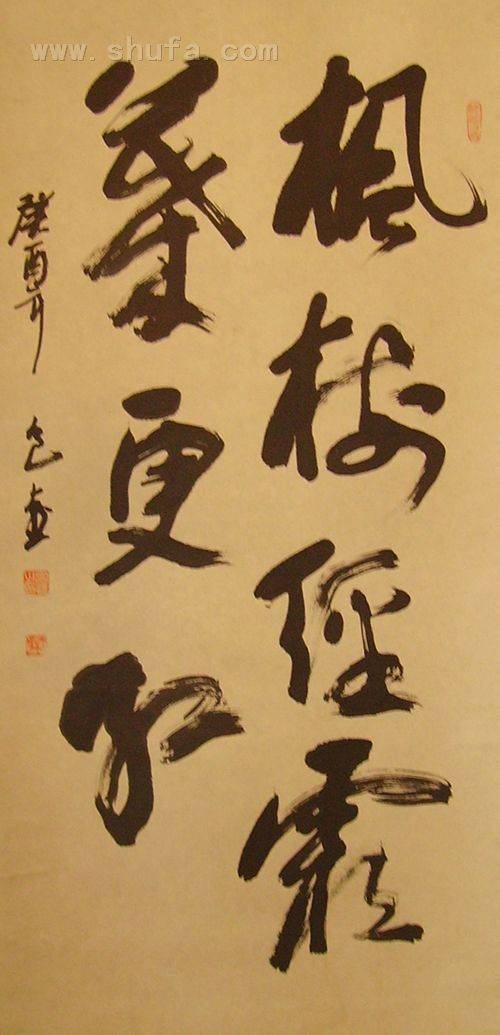 www.shufa.com
枫树经霜
叶更红
癸酉